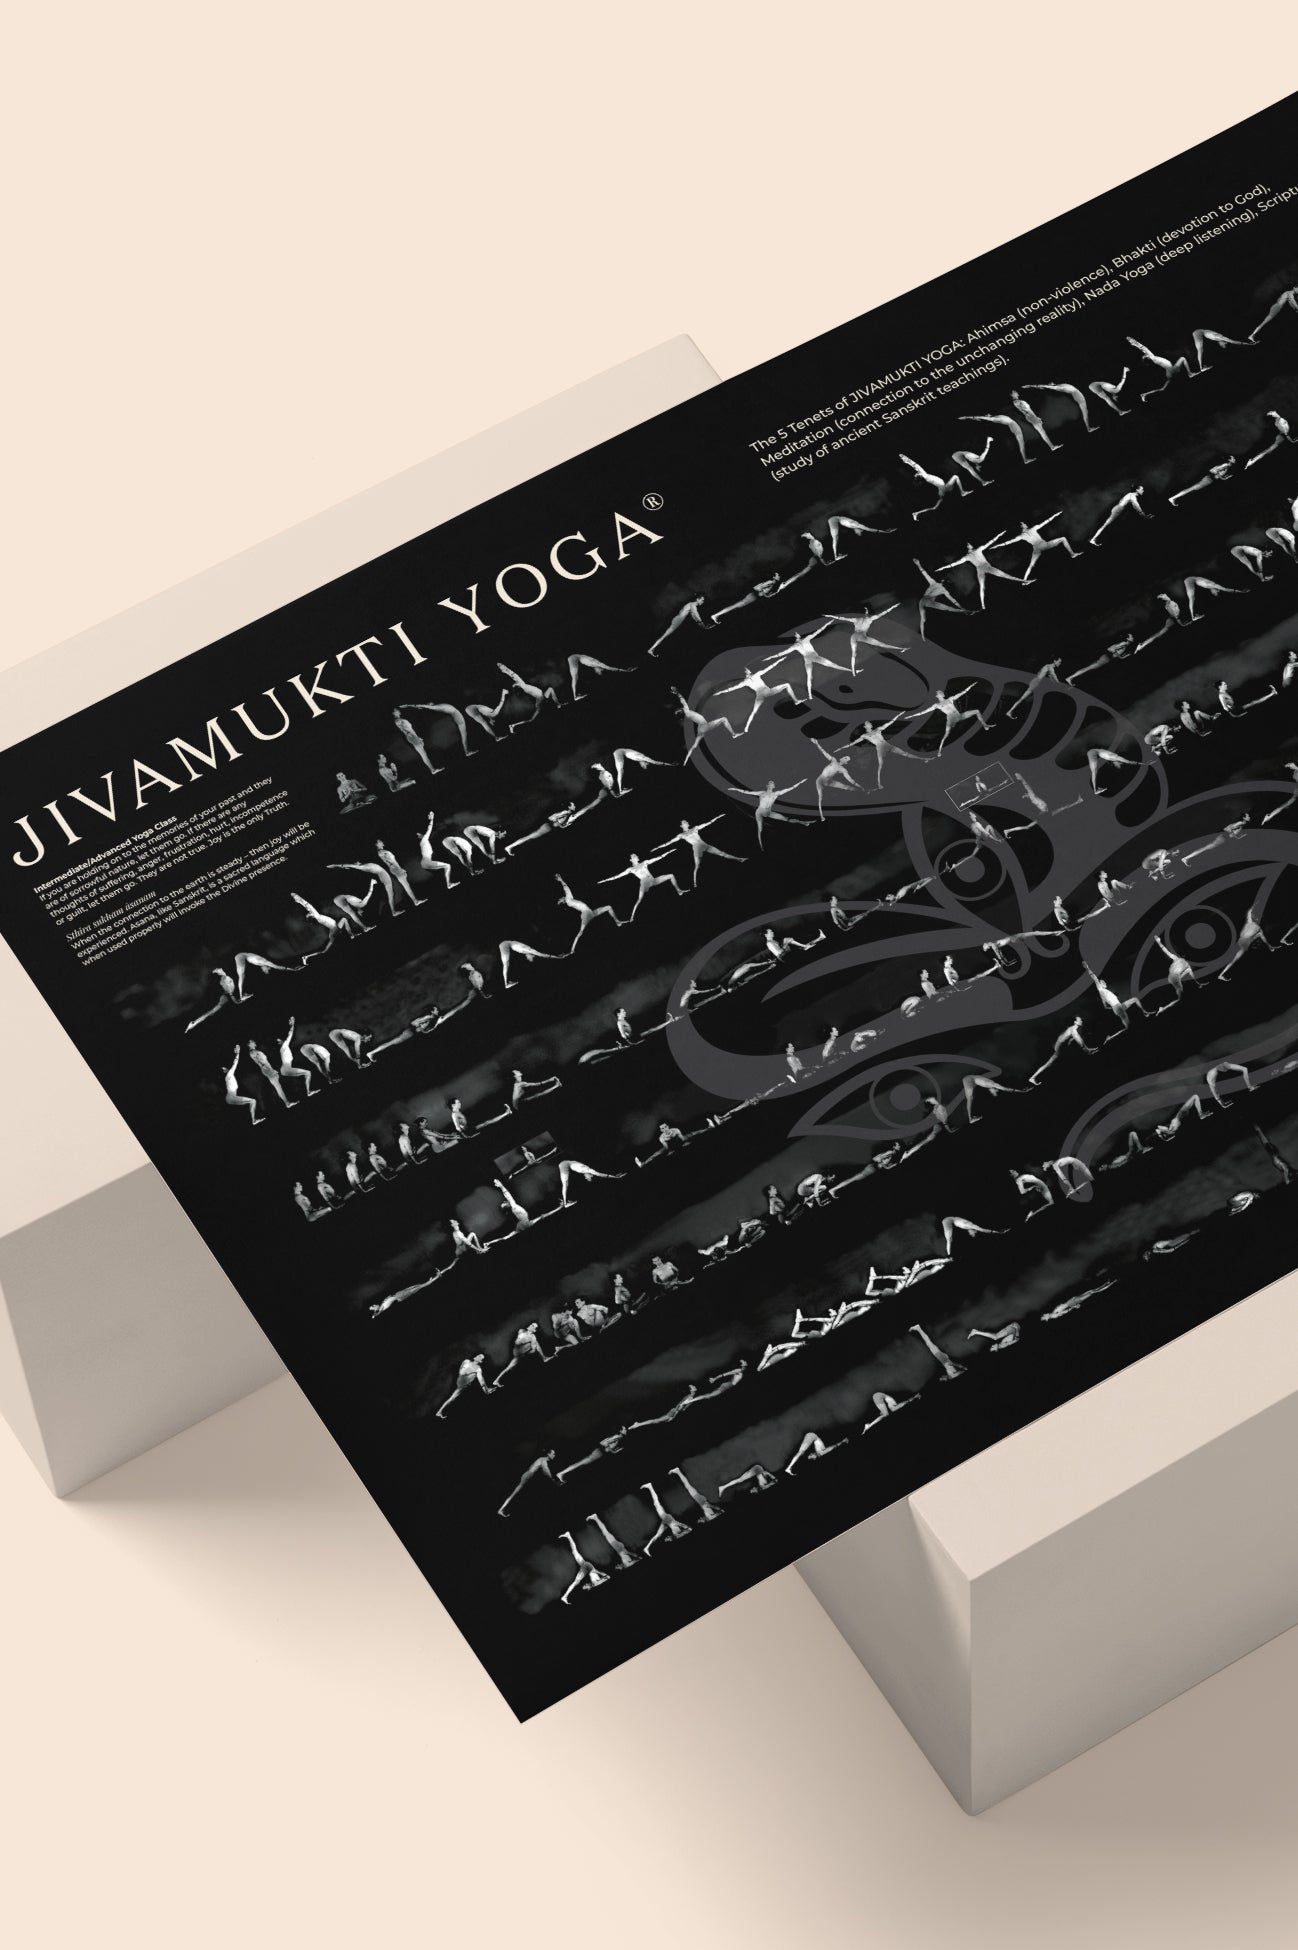 JIVAMUKTI YOGA®
Intermediate/Advanced Yoga Class
If you are holding on to the memories of your past and they
are of sorrowful nature, let them go. If there are any
thoughts of suffering, anger, frustration, hurt, incompetence
or guilt, let them go. They are not true. Joy is the only Truth.
Sthira sukham āsanam
When the connection to the earth is steady – then joy will be
experienced. Asana, like Sanskrit, is a sacred language which
when used properly will invoke the Divine presence.
The 5 Tenets of JIVAMUKTI YOGA: Ahimsa (non-violence), Bhakti (devotion to God),
Meditation (connection to the unchanging reality), Nada Yoga (deep listening),
(study of ancient Sanskrit teachings).